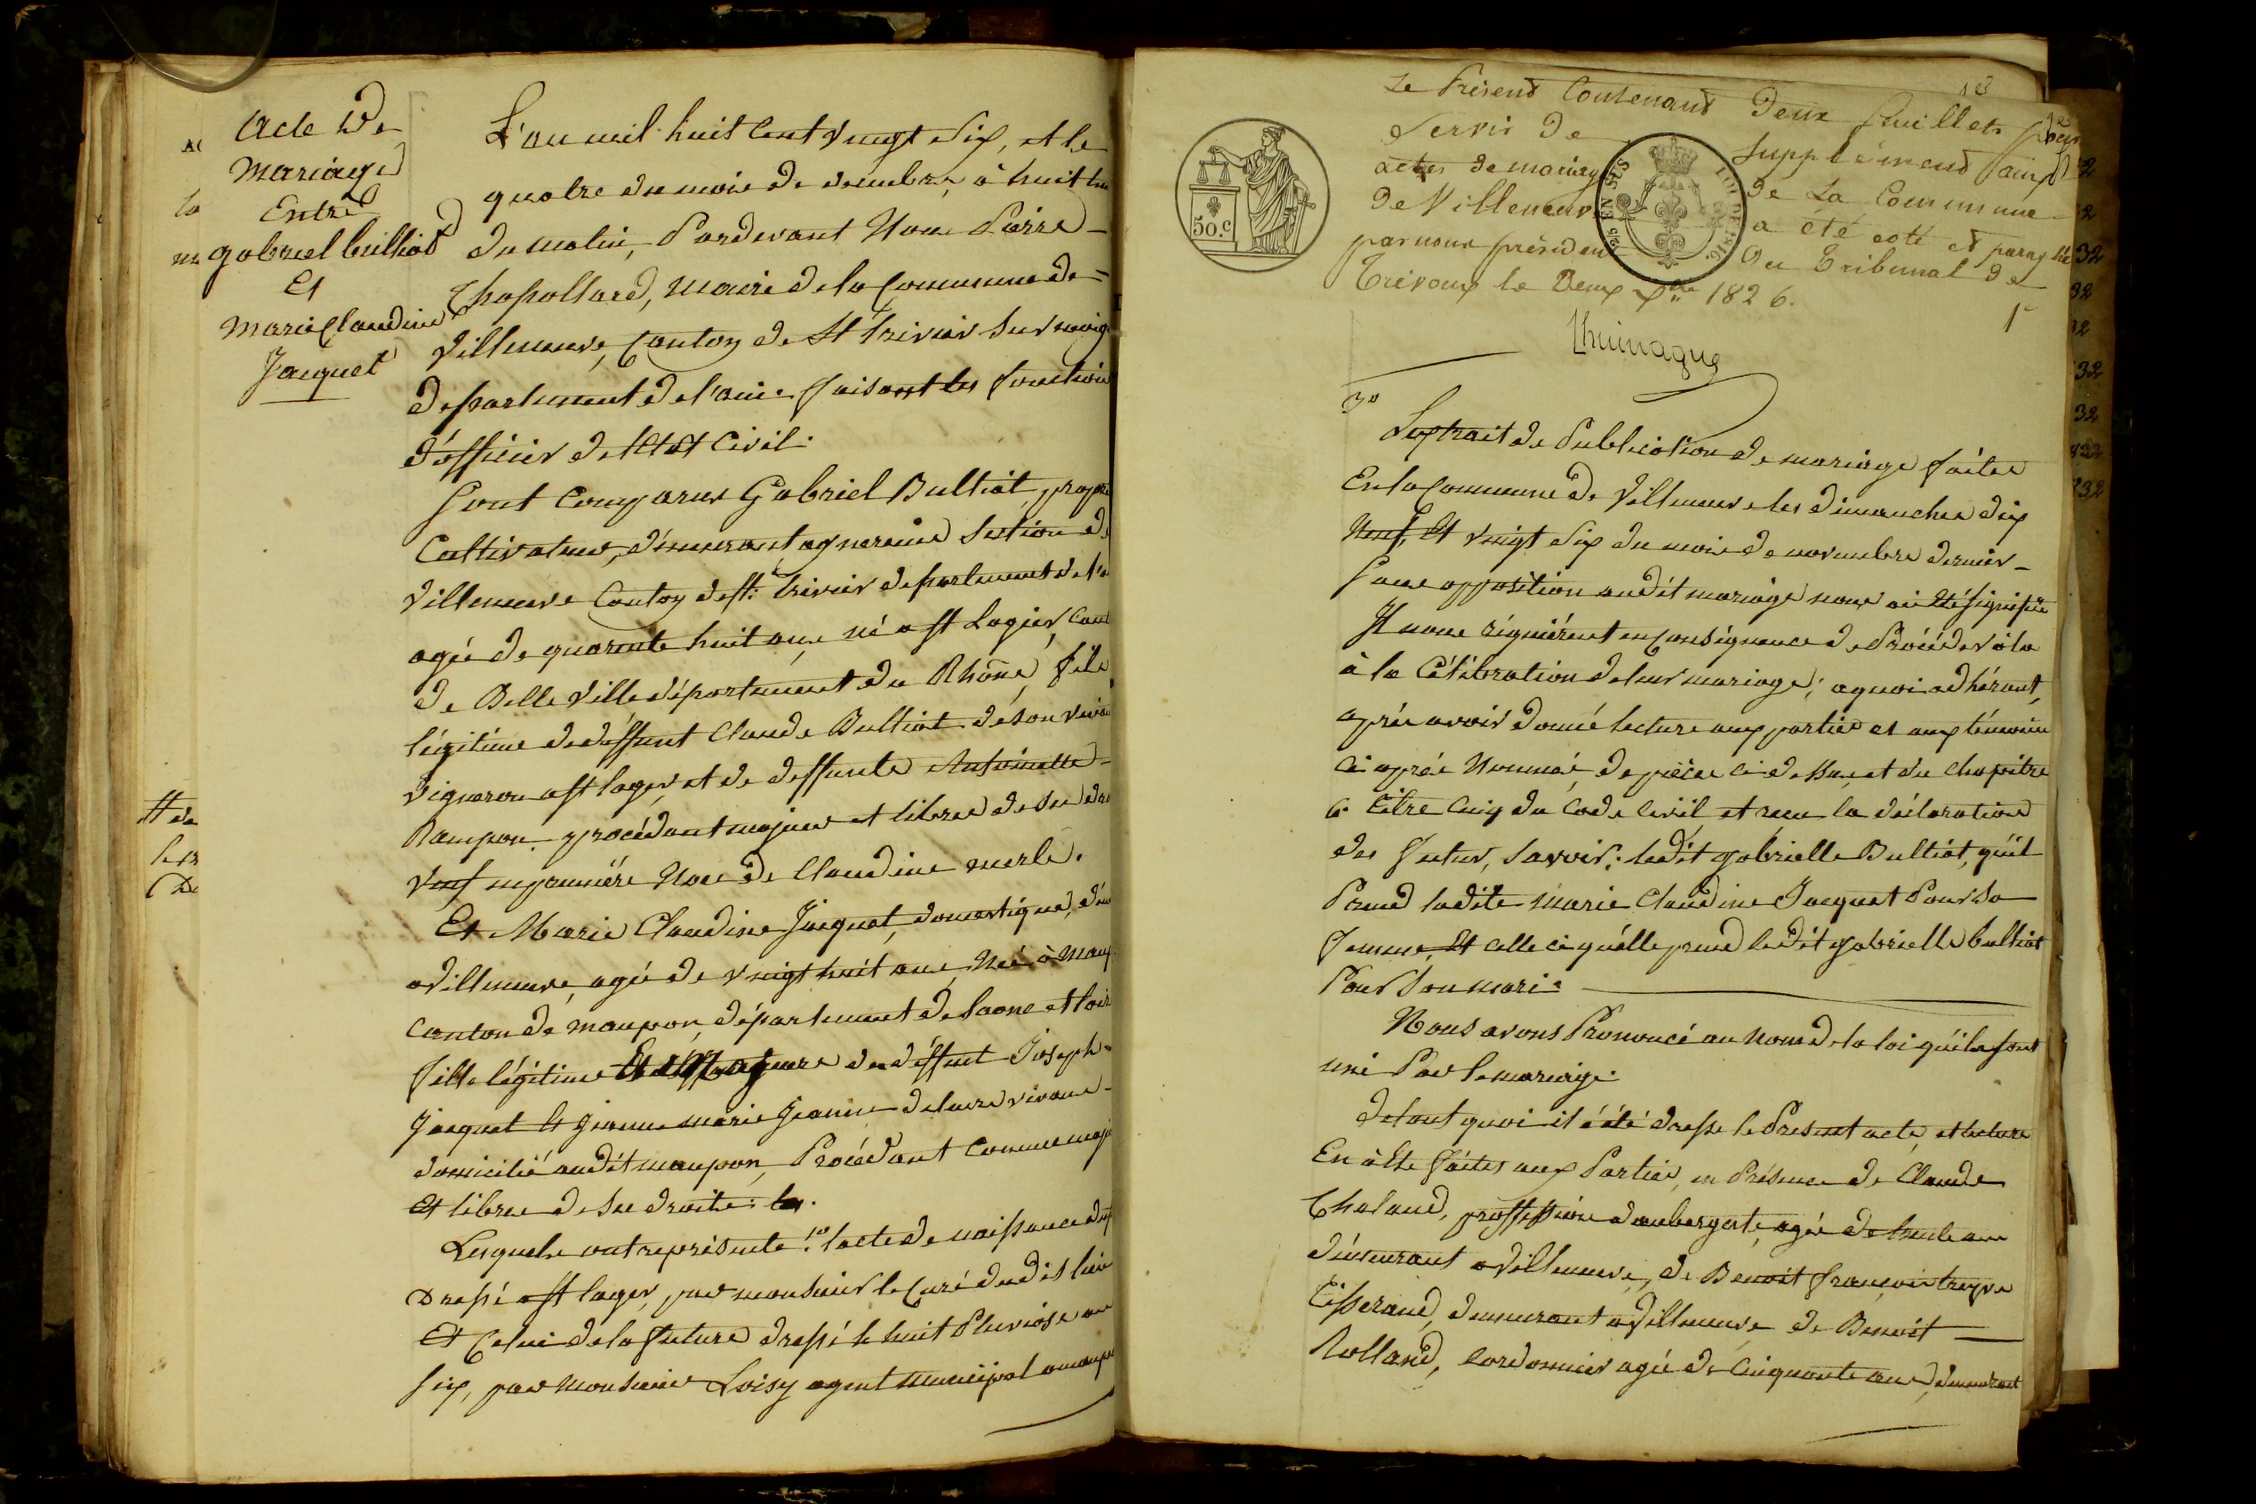 Acte De
Mariage
Entre
gabriel bulliot
Et
Marie Claudine
Jaquet
L'an mil huit Cent Vingt Six, et le
quatre du mois de décembre à huit
du matin, Pardevant Nous Pierre
Chapollard, Maire de la Commune de
Villeneuve, Canton de St trivier Sur
département de l'ain faisant les fonction
d'officier de l'Etat Civil.
Sont Comparus Gabriel Bulliot
Cultivateur, démeurant agnereins Section de
Villeneuve Canton de St. trivier département de l'
agée de quarente huit ans, né a St Lagier, Cant
de Belle Ville département du Rhône, fils
légitime de deffunt Claude Bulliot de son vivan
Vigneron a St lager et de deffunte Antoinette
Dampon procédant majeur et libres de ses
veuf en première Noce de Claudine merle.
Et Marie Claudine Jaquet, domestique,
a Villeneuve, agée de vingt huit ans, Née à
Canton de département de Saone et loire
fille légitime Et du deffunt Joseph
Jaquet Et jeanne marie
domicilié audit Procédant Comme
Et libres de Ses droits.
Lesquels ont représenté 1° lacte de naissance
Dressé a St lager, par monsieur le Curé dudit lieu
Et Celui de la future dressé le huit Pluviose an
Six, par Monsieur Loisy agent municipal
#
13
Le Présent Contenant Deux feuillets pour
Servir De Supplément aux
actes de mariage de La Commune
de Villeneuve a été coté et paraphé
par nous président Du Tribunal De
Trévoux le Deux Xbre 1826.
50.C
EN SUS
LOI DE 1816
1r
3°
Lextrait de Publication de mariage faites
En la Commune de Villeneuve les dimanches dix
Neuf Et Vingt Six du mois de novembre dernier
Sans opposition audit mariage nous aie Eté Signifiée
Il nous réquiérent en Conséquence de Procéder à la
à la Célébration de leur mariage; aquoi adhérant,
après avoir donné lecture aux parties et aux témoins
Ci après Nommés de pièces Ci dessus, et du Chapitre
6. titre Cinq du Code Civil et recu la déclaration
des futur, Savoir: ledit gabrielle Bulliot, qu'il
Prend ladite Marie Claudine Jaquet Pour Sa
femme, Et celle ci qu'elle prend ledit gabrielle bulliot
Pour Son mari.
Nous avons Prononcé au Nom de la loi qu'ils Sont
uni Par le mariage.
De tout quoi il à été dressé le Présent acte et lecture
En à Ete faites aux Parties, en Présence de Claude
Chaland, proffession daubergiste, agée de trente ans
démeurant a Villeneuve, de Benoit françois
tisserand, demeurant a Villeneuve de Benoit
Rolland, Cordonnier agée de Cinquante ans, demeurant
32
32
32
32